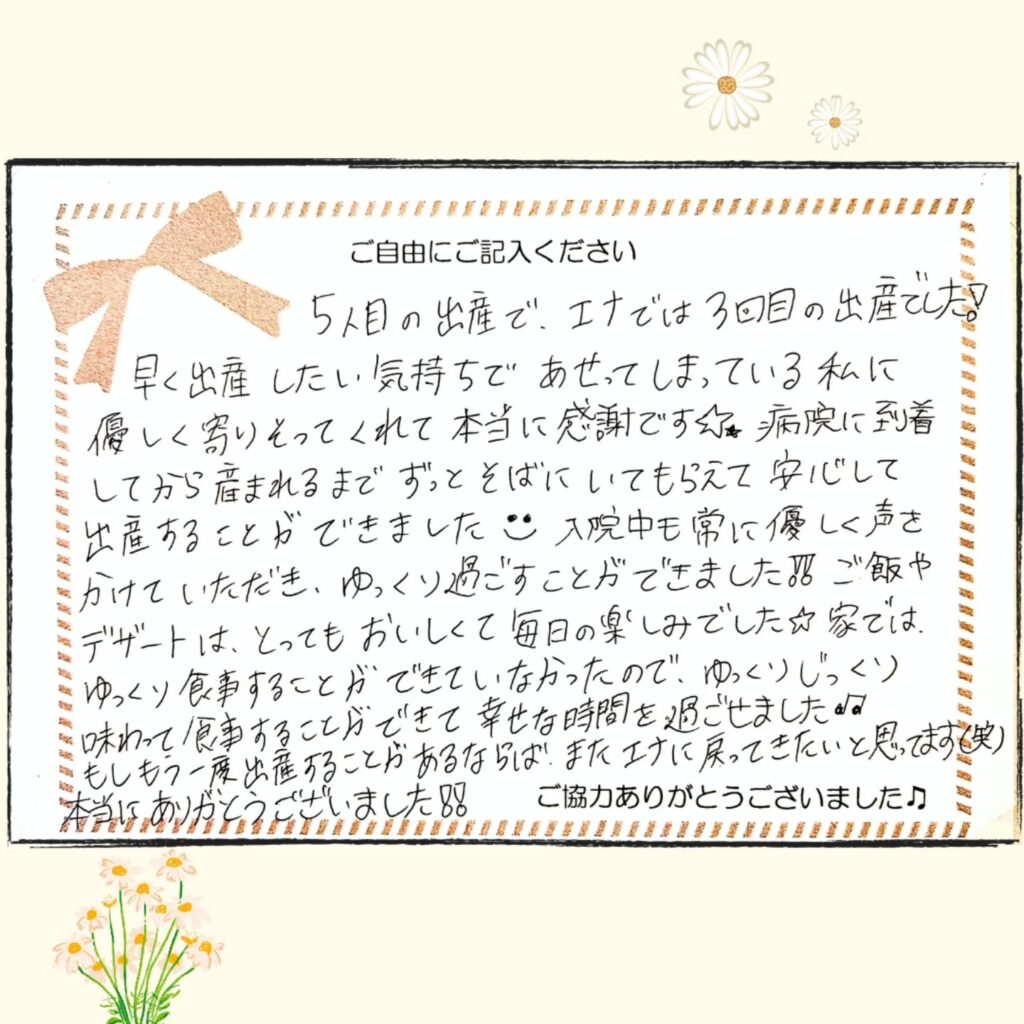 ご自由にご記入ください
5人目の出産で、エナでは3回目の出産でした!
早く出産したい気持ちであせってしまっている私に
優しく寄りそってくれて本当に感謝です☆★ 病院に到着
してから産まれるまでずっとそばにいてもらえて安心して
出産することができました 入院中も常に優しく声を
かけていただき、ゆっくり過ごすことができました!! ご飯や
デザートは、とってもおいしくて毎日の楽しみでした☆家では、
ゆっくり食事することができていなかったので、ゆっくりじっくり
味わって食事することができて幸せな時間を過ごせました♫
もしもう一度出産することがあるならば、またエナに戻ってきたいと思ってます(笑)
本当にありがとうございました!!
ご協力ありがとうございました♫